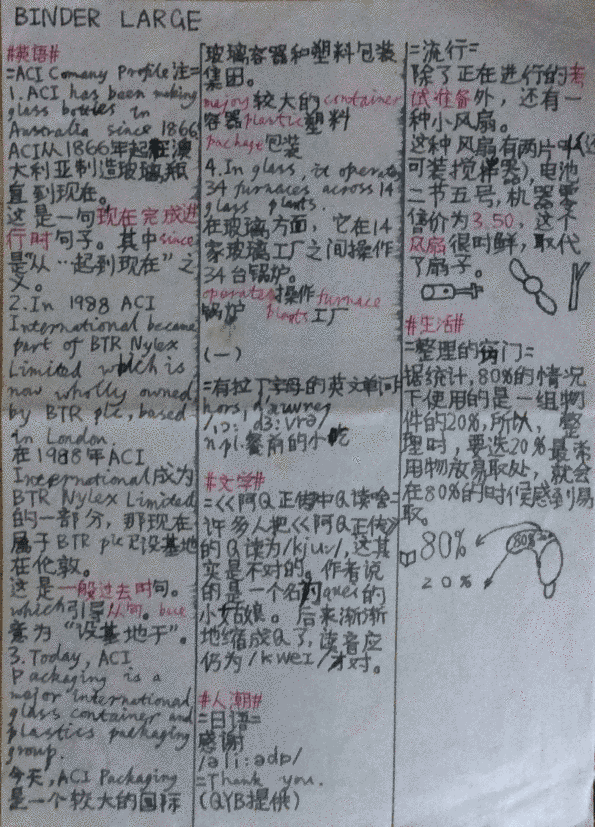 BINDER LARGE
#英语#
=ACI Comany Profile注=
1. ACI has been making
glass bottles in
Australia since 1866
ACI从1866年起在澳
大利亚制造玻璃瓶
直到现在。
这是一句现在完成进
行时句子。其中since
是“从…起到现在”之
义。
2. In 1988 ACI
International became
part of BTR Nylex
Limited which is
now wholly owned
by BTR plc, based
in London.
在1988年ACI
International成为
BTR Nylex Limited
的一部分,那现在
属于BTR plc设基地
在伦敦。
这是一般过去时句。
which引导从句。
意为“设基地于”。
3. Today, ACI
Packaging is a
major international
glass container and
plastics packaging
group.
今天,ACI Packaging
是一个较大的国际
玻璃容器和塑料包装
集团。
major较大的container
容器plastic塑料
包装
4. In glass, it operates
34 furnaces across 14
glass plants.
在玻璃方面,它在14
家玻璃工厂之间操作
34台锅炉。
operates操作furnace
锅炉 plants工厂
(一)
=有拉丁字母的英文单词
hors d'œuvres
n.pl.餐前的小吃
#文学#
=<<阿Q正传中Q读啥=
许多人把<<阿Q正传>>
的Q读为/kju:/,这其
实是不对的。作者说
的是一个名为quei的
小姑娘。后来渐渐
地缩成Q了,读音应
仍为/kweI/才对。
#人潮#
=日语=
感谢
=Thank you.
(QYB提供)
=流行=
除了正在进行的考
试准备外,还有一
种小风扇。
这种风扇有两片叶(还
可装搅拌器),电池
二节五号,机器零
售价为3.50,这个
风扇很时鲜,取代
了扇子。
#生活#
=整理的窍门=
据统计,80%的情况
下使用的是一组物
件的20%,所以,整
理时,要选20%最常
用物放易取处,就会
在80%的时候感到易
取。
80% 80%
20%